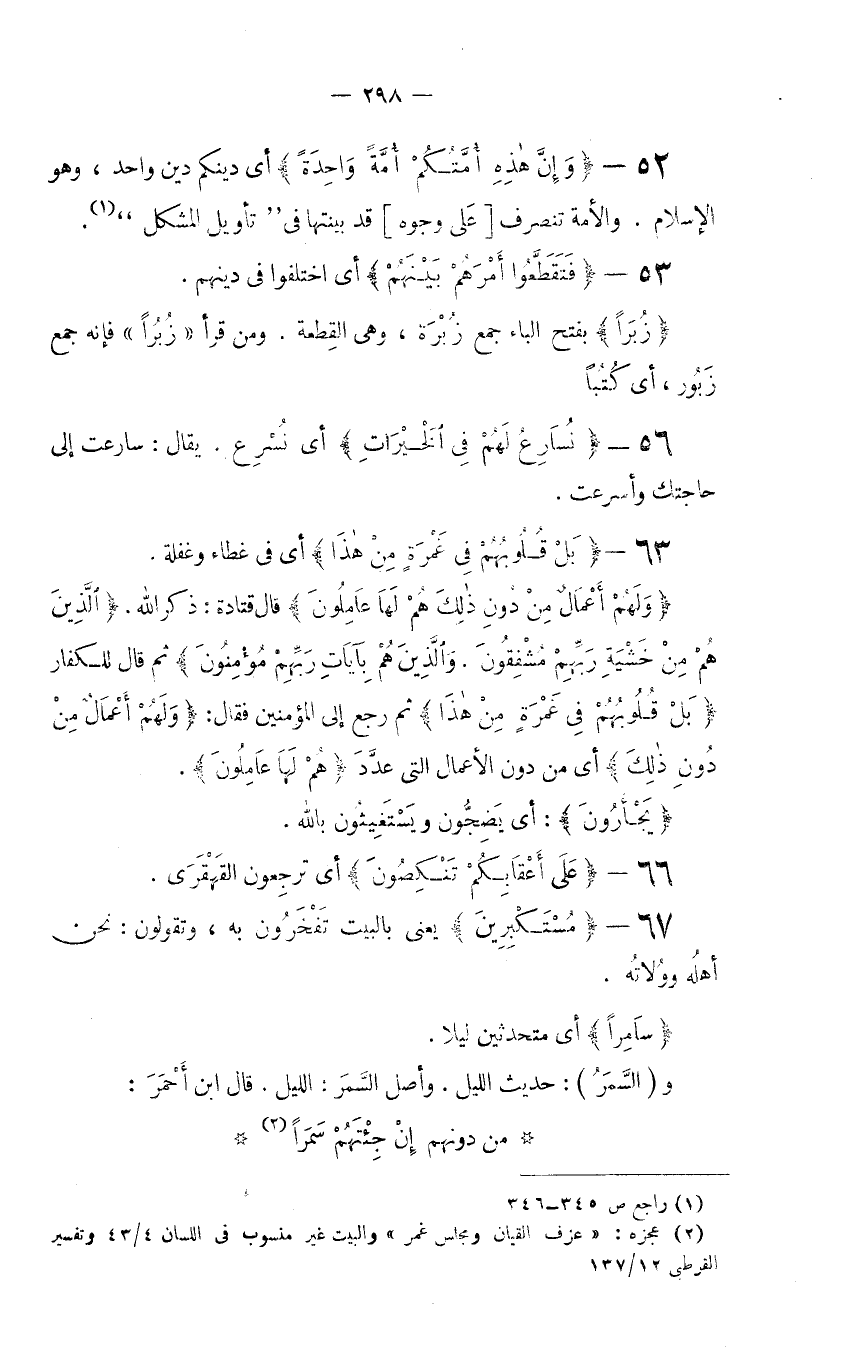 — ٢٩٨ —
٥٢ — ﴿ وَإِنَّ هٰذِهِ أُمَّتُكُمْ أُمَّةً وَاحِدَةً ﴾ أى دينكم دين واحد ، وهو
الإسلام . والأمة تنصرف [ عَلَى وجوه ] قد بينتها فى ” تأويل المشكل “(١).
٥٣ — ﴿ فَتَقَطَّعُوا أَمْرَهُمْ بَيْنَهُمْ ﴾ أى اختلفوا فى دينهم .
﴿ زُبَرَاً ﴾ بفتح الباء جمع زُبْرَة ، وهى القِطعة . ومن قرأ « زُبُراً » فإنه جمع
زَبُور ، أى كُتُباً
٥٦ — ﴿ نُسَارِعُ لَهُمْ فِى ٱلْخَيْرَاتِ ﴾ أى نُسْرِع . يقال : سارعت إلى
حاجتك وأسرعت .
٦٣ — ﴿ بَلْ قُلُوبُهُمْ فِى غَمْرَةٍ مِنْ هٰذَا ﴾ أى فى غطاء وغفلة .
﴿ وَلَهُمْ أَعْمَالٌ مِنْ دُونِ ذٰلِكَ هُمْ لَهَا عَامِلُونَ ﴾ قال قتادة : ذكر الله . ﴿ ٱلَّذِينَ
هُمْ مِنْ خَشْيَةِ رَبِّهِمْ مُشْفِقُونَ . وَٱلَّذِينَ هُمْ بِآيَاتِ رَبِّهِمْ مُؤْمِنُونَ ﴾ ثم قال للكفار
﴿ بَلْ قُلُوبُهُمْ فِى غَمْرَةٍ مِنْ هٰذَا ﴾ ثم رجع إلى المؤمنين فقال: ﴿ وَلَهُمْ أَعْمَالٌ مِنْ
دُونِ ذٰلِكَ ﴾ أى من دون الأعمال التى عدَّدَ ﴿ هُمْ لَهَا عَامِلُونَ ﴾ .
﴿ يَجْأَرُونَ ﴾ : أى يَضِجُّون ويَسْتَغِيثُون بالله .
٦٦ — ﴿ عَلَى أَعْقَابِكُمْ تَنْكِصُونَ ﴾ أى ترجعون القَهْقَرَى .
٦٧ — ﴿ مُسْتَكْبِرِينَ ﴾ يعنى بالبيت تَفْخَرُون به ، وتقولون : نحن
أهلُه وولاتُه .
﴿ سَامِراً ﴾ أى متحدثين ليلا .
و ( السَّمَرُ ) : حديث الليل . وأصل السَّمَر : الليل . قال ابن أَحْمَرَ :
* من دونهم إنْ جِئْتَهُمْ سَمَراً (٢) *
(١) راجع ص ٣٤٥–٣٤٦
(٢) عجزه : « عزف القيان ومجلس غمر » والبيت غير منسوب فى اللسان ٤٣/٤ وتفسير
القرطبى ١٣٧/١٢